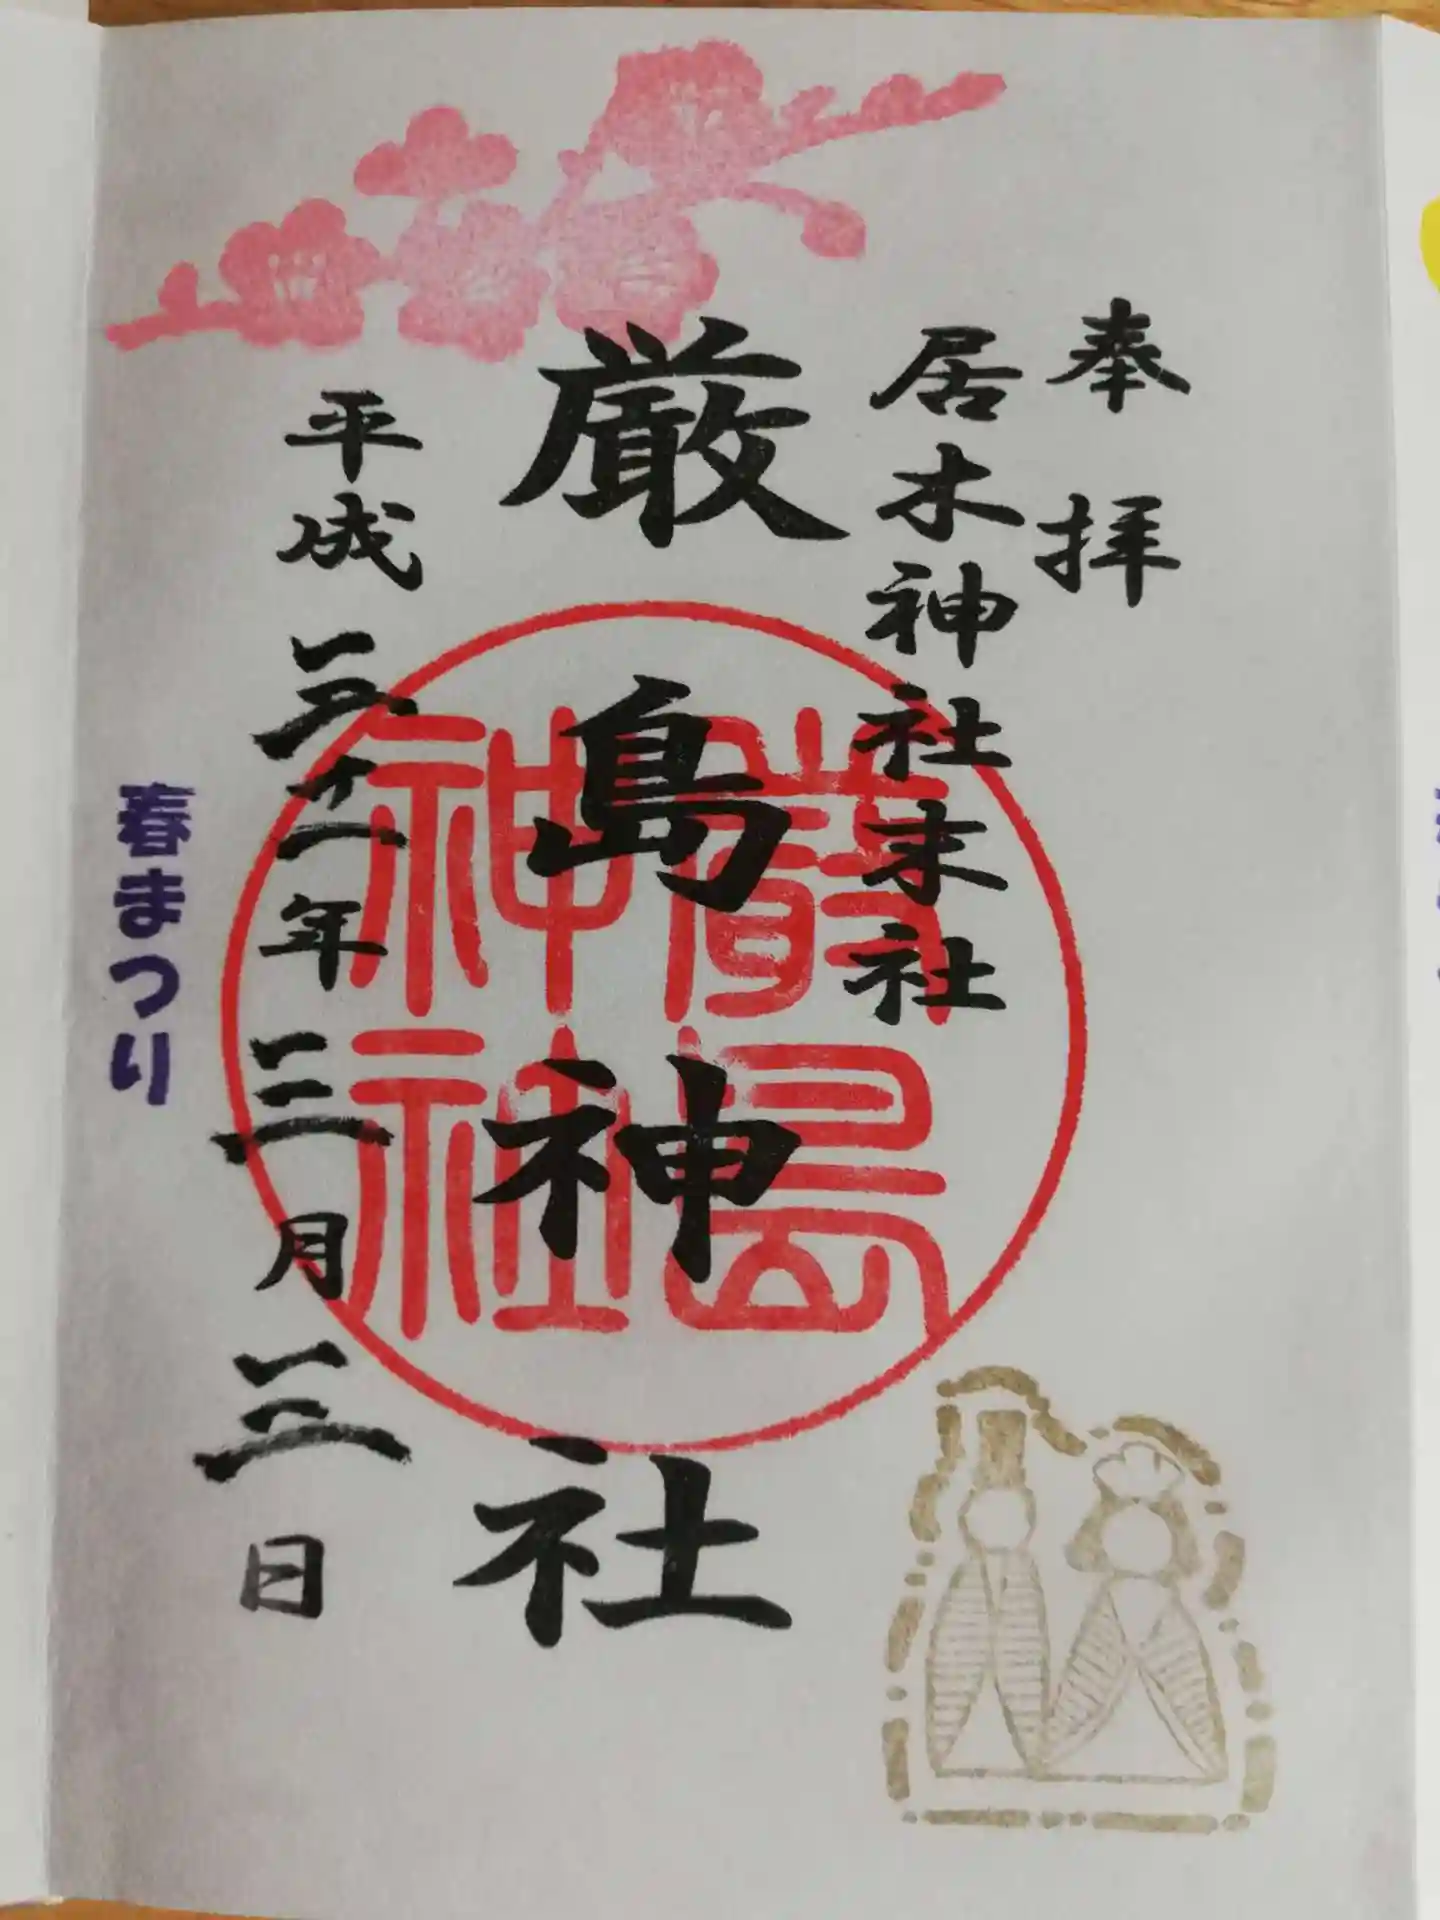 奉拝
居木神社末社
厳島神社
嚴島神社
平成三十一年三月三日
春まつり